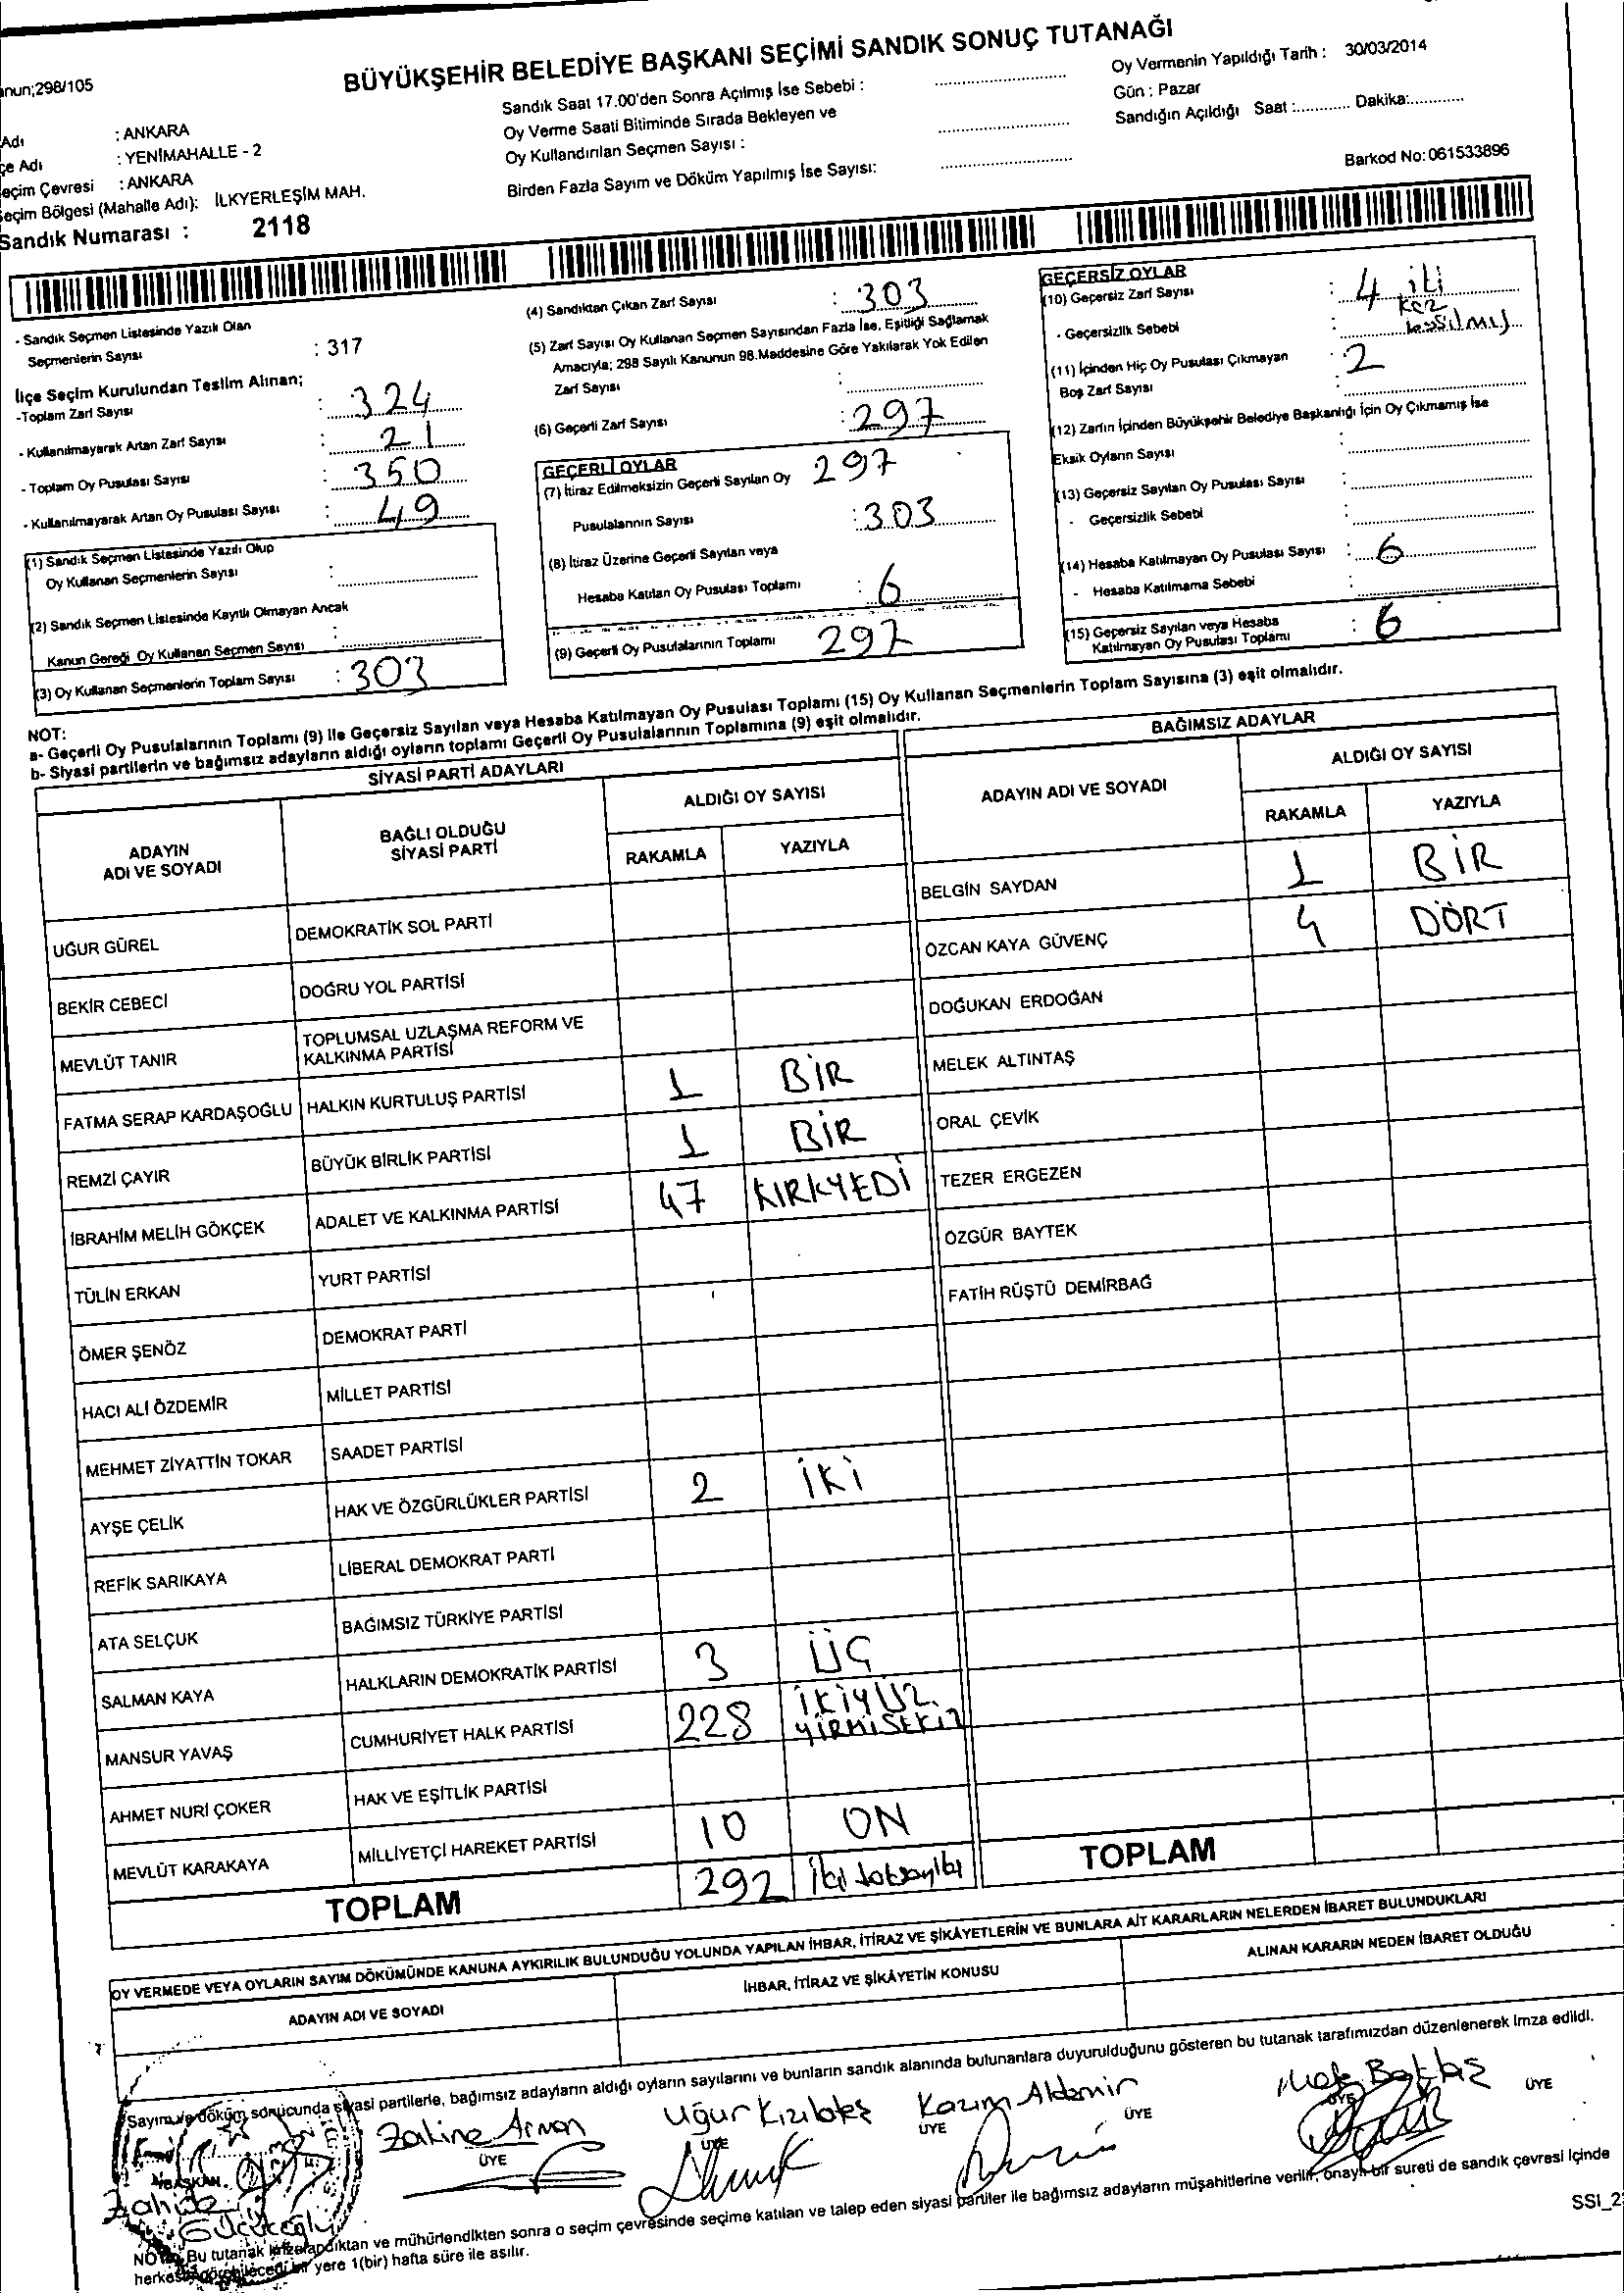 BÜYÜKŞEHİR BELEDİYE BAŞKANI SEÇİMİ SANDIK SONUÇ TUTANAĞI
anun;298/105
Adı : ANKARA
çe Adı : YENİMAHALLE - 2
eçim Çevresi : ANKARA
Seçim Bölgesi (Mahalle Adı): İLKYERLEŞİM MAH.
Sandık Numarası : 2118
Sandık Saat 17.00'den Sonra Açılmış İse Sebebi :
Oy Verme Saati Bitiminde Sırada Bekleyen ve
Oy Kullandırılan Seçmen Sayısı :
Birden Fazla Sayım ve Döküm Yapılmış İse Sayısı:
Oy Vermenin Yapıldığı Tarih : 30/03/2014
Gün : Pazar
Sandığın Açıldığı Saat :............ Dakika:............
Barkod No: 061533896
- Sandık Seçmen Listesinde Yazılı Olan
Seçmenlerin Sayısı : 317
İlçe Seçim Kurulundan Teslim Alınan;
-Toplam Zarf Sayısı : 324
- Kullanılmayarak Artan Zarf Sayısı : 21
- Toplam Oy Pusulası Sayısı : 350
- Kullanılmayarak Artan Oy Pusulası Sayısı : 49
(1) Sandık Seçmen Listesinde Yazılı Olup
Oy Kullanan Seçmenlerin Sayısı :
(2) Sandık Seçmen Listesinde Kayıtlı Olmayan Ancak
Kanun Gereği Oy Kullanan Seçmen Sayısı :
(3) Oy Kullanan Seçmenlerin Toplam Sayısı : 303
(4) Sandıktan Çıkan Zarf Sayısı : 303
(5) Zarf Sayısı Oy Kullanan Seçmen Sayısından Fazla İse, Eşitliği Sağlamak
Amacıyla; 298 Sayılı Kanunun 98.Maddesine Göre Yakılarak Yok Edilen
Zarf Sayısı :
(6) Geçerli Zarf Sayısı : 297
GEÇERLİ OYLAR
(7) İtiraz Edilmeksizin Geçerli Sayılan Oy 297
Pusulalarının Sayısı : 303
(8) İtiraz Üzerine Geçerli Sayılan veya
Hesaba Katılan Oy Pusulası Toplamı : 6
(9) Geçerli Oy Pusulalarının Toplamı 297
GEÇERSİZ OYLAR
(10) Geçersiz Zarf Sayısı : 4 iki
kez
- Geçersizlik Sebebi : basılmış
(11) İçinden Hiç Oy Pusulası Çıkmayan : 2
Boş Zarf Sayısı
(12) Zarfın İçinden Büyükşehir Belediye Başkanlığı İçin Oy Çıkmamış İse
Eksik Oyların Sayısı :
(13) Geçersiz Sayılan Oy Pusulası Sayısı :
- Geçersizlik Sebebi :
(14) Hesaba Katılmayan Oy Pusulası Sayısı : 6
- Hesaba Katılmama Sebebi :
(15) Geçersiz Sayılan veya Hesaba
Katılmayan Oy Pusulası Toplamı : 6
NOT:
a- Geçerli Oy Pusulalarının Toplamı (9) ile Geçersiz Sayılan veya Hesaba Katılmayan Oy Pusulası Toplamı (15) Oy Kullanan Seçmenlerin Toplam Sayısına (3) eşit olmalıdır.
b- Siyasi partilerin ve bağımsız adayların aldığı oyların toplamı Geçerli Oy Pusulalarının Toplamına (9) eşit olmalıdır.
SİYASİ PARTİ ADAYLARI
ADAYIN
ADI VE SOYADI
BAĞLI OLDUĞU
SİYASİ PARTİ
ALDIĞI OY SAYISI
RAKAMLA YAZIYLA
UĞUR GÜREL DEMOKRATİK SOL PARTİ
BEKİR CEBECİ DOĞRU YOL PARTİSİ
MEVLÜT TANIR TOPLUMSAL UZLAŞMA REFORM VE
KALKINMA PARTİSİ
FATMA SERAP KARDAŞOĞLU HALKIN KURTULUŞ PARTİSİ 1 BİR
REMZİ ÇAYIR BÜYÜK BİRLİK PARTİSİ 1 BİR
İBRAHİM MELİH GÖKÇEK ADALET VE KALKINMA PARTİSİ 47 KIRKYEDİ
TÜLİN ERKAN YURT PARTİSİ
ÖMER ŞENÖZ DEMOKRAT PARTİ
HACI ALİ ÖZDEMİR MİLLET PARTİSİ
MEHMET ZİYATTİN TOKAR SAADET PARTİSİ
AYŞE ÇELİK HAK VE ÖZGÜRLÜKLER PARTİSİ 2 İKİ
REFİK SARIKAYA LİBERAL DEMOKRAT PARTİ
ATA SELÇUK BAĞIMSIZ TÜRKİYE PARTİSİ
SALMAN KAYA HALKLARIN DEMOKRATİK PARTİSİ 3 ÜÇ
MANSUR YAVAŞ CUMHURİYET HALK PARTİSİ 228 İKİYÜZ
YİRMİSEKİZ
AHMET NURİ ÇOKER HAK VE EŞİTLİK PARTİSİ
MEVLÜT KARAKAYA MİLLİYETÇİ HAREKET PARTİSİ 10 ON
TOPLAM 292
BAĞIMSIZ ADAYLAR
ADAYIN ADI VE SOYADI
ALDIĞI OY SAYISI
RAKAMLA YAZIYLA
BELGİN SAYDAN 1 BİR
ÖZCAN KAYA GÜVENÇ 4 DÖRT
DOĞUKAN ERDOĞAN
MELEK ALTINTAŞ
ORAL ÇEVİK
TEZER ERGEZEN
ÖZGÜR BAYTEK
FATİH RÜŞTÜ DEMİRBAĞ
TOPLAM
OY VERMEDE VEYA OYLARIN SAYIM DÖKÜMÜNDE KANUNA AYKIRILIK BULUNDUĞU YOLUNDA YAPILAN İHBAR, İTİRAZ VE ŞİKÂYETLERİN VE BUNLARA AİT KARARLARIN NELERDEN İBARET BULUNDUKLARI
ADAYIN ADI VE SOYADI İHBAR, İTİRAZ VE ŞİKÂYETİN KONUSU ALINAN KARARIN NEDEN İBARET OLDUĞU
Sayım ve döküm sonucunda siyasi partilerle, bağımsız adayların aldığı oyların sayılarını ve bunların sandık alanında bulunanlara duyurulduğunu gösteren bu tutanak tarafımızdan düzenlenerek imza edildi.
Uğur Kızılateş Kazım Akdemir
BAŞKAN ÜYE ÜYE ÜYE ÜYE ÜYE ÜYE
NOT: Bu tutanak imzalandıktan ve mühürlendikten sonra o seçim çevresinde seçime katılan ve talep eden siyasi partiler ile bağımsız adayların müşahitlerine verilir, onaylı bir sureti de sandık çevresi içinde
herkesin görebileceği bir yere 1(bir) hafta süre ile asılır.
SSI_2